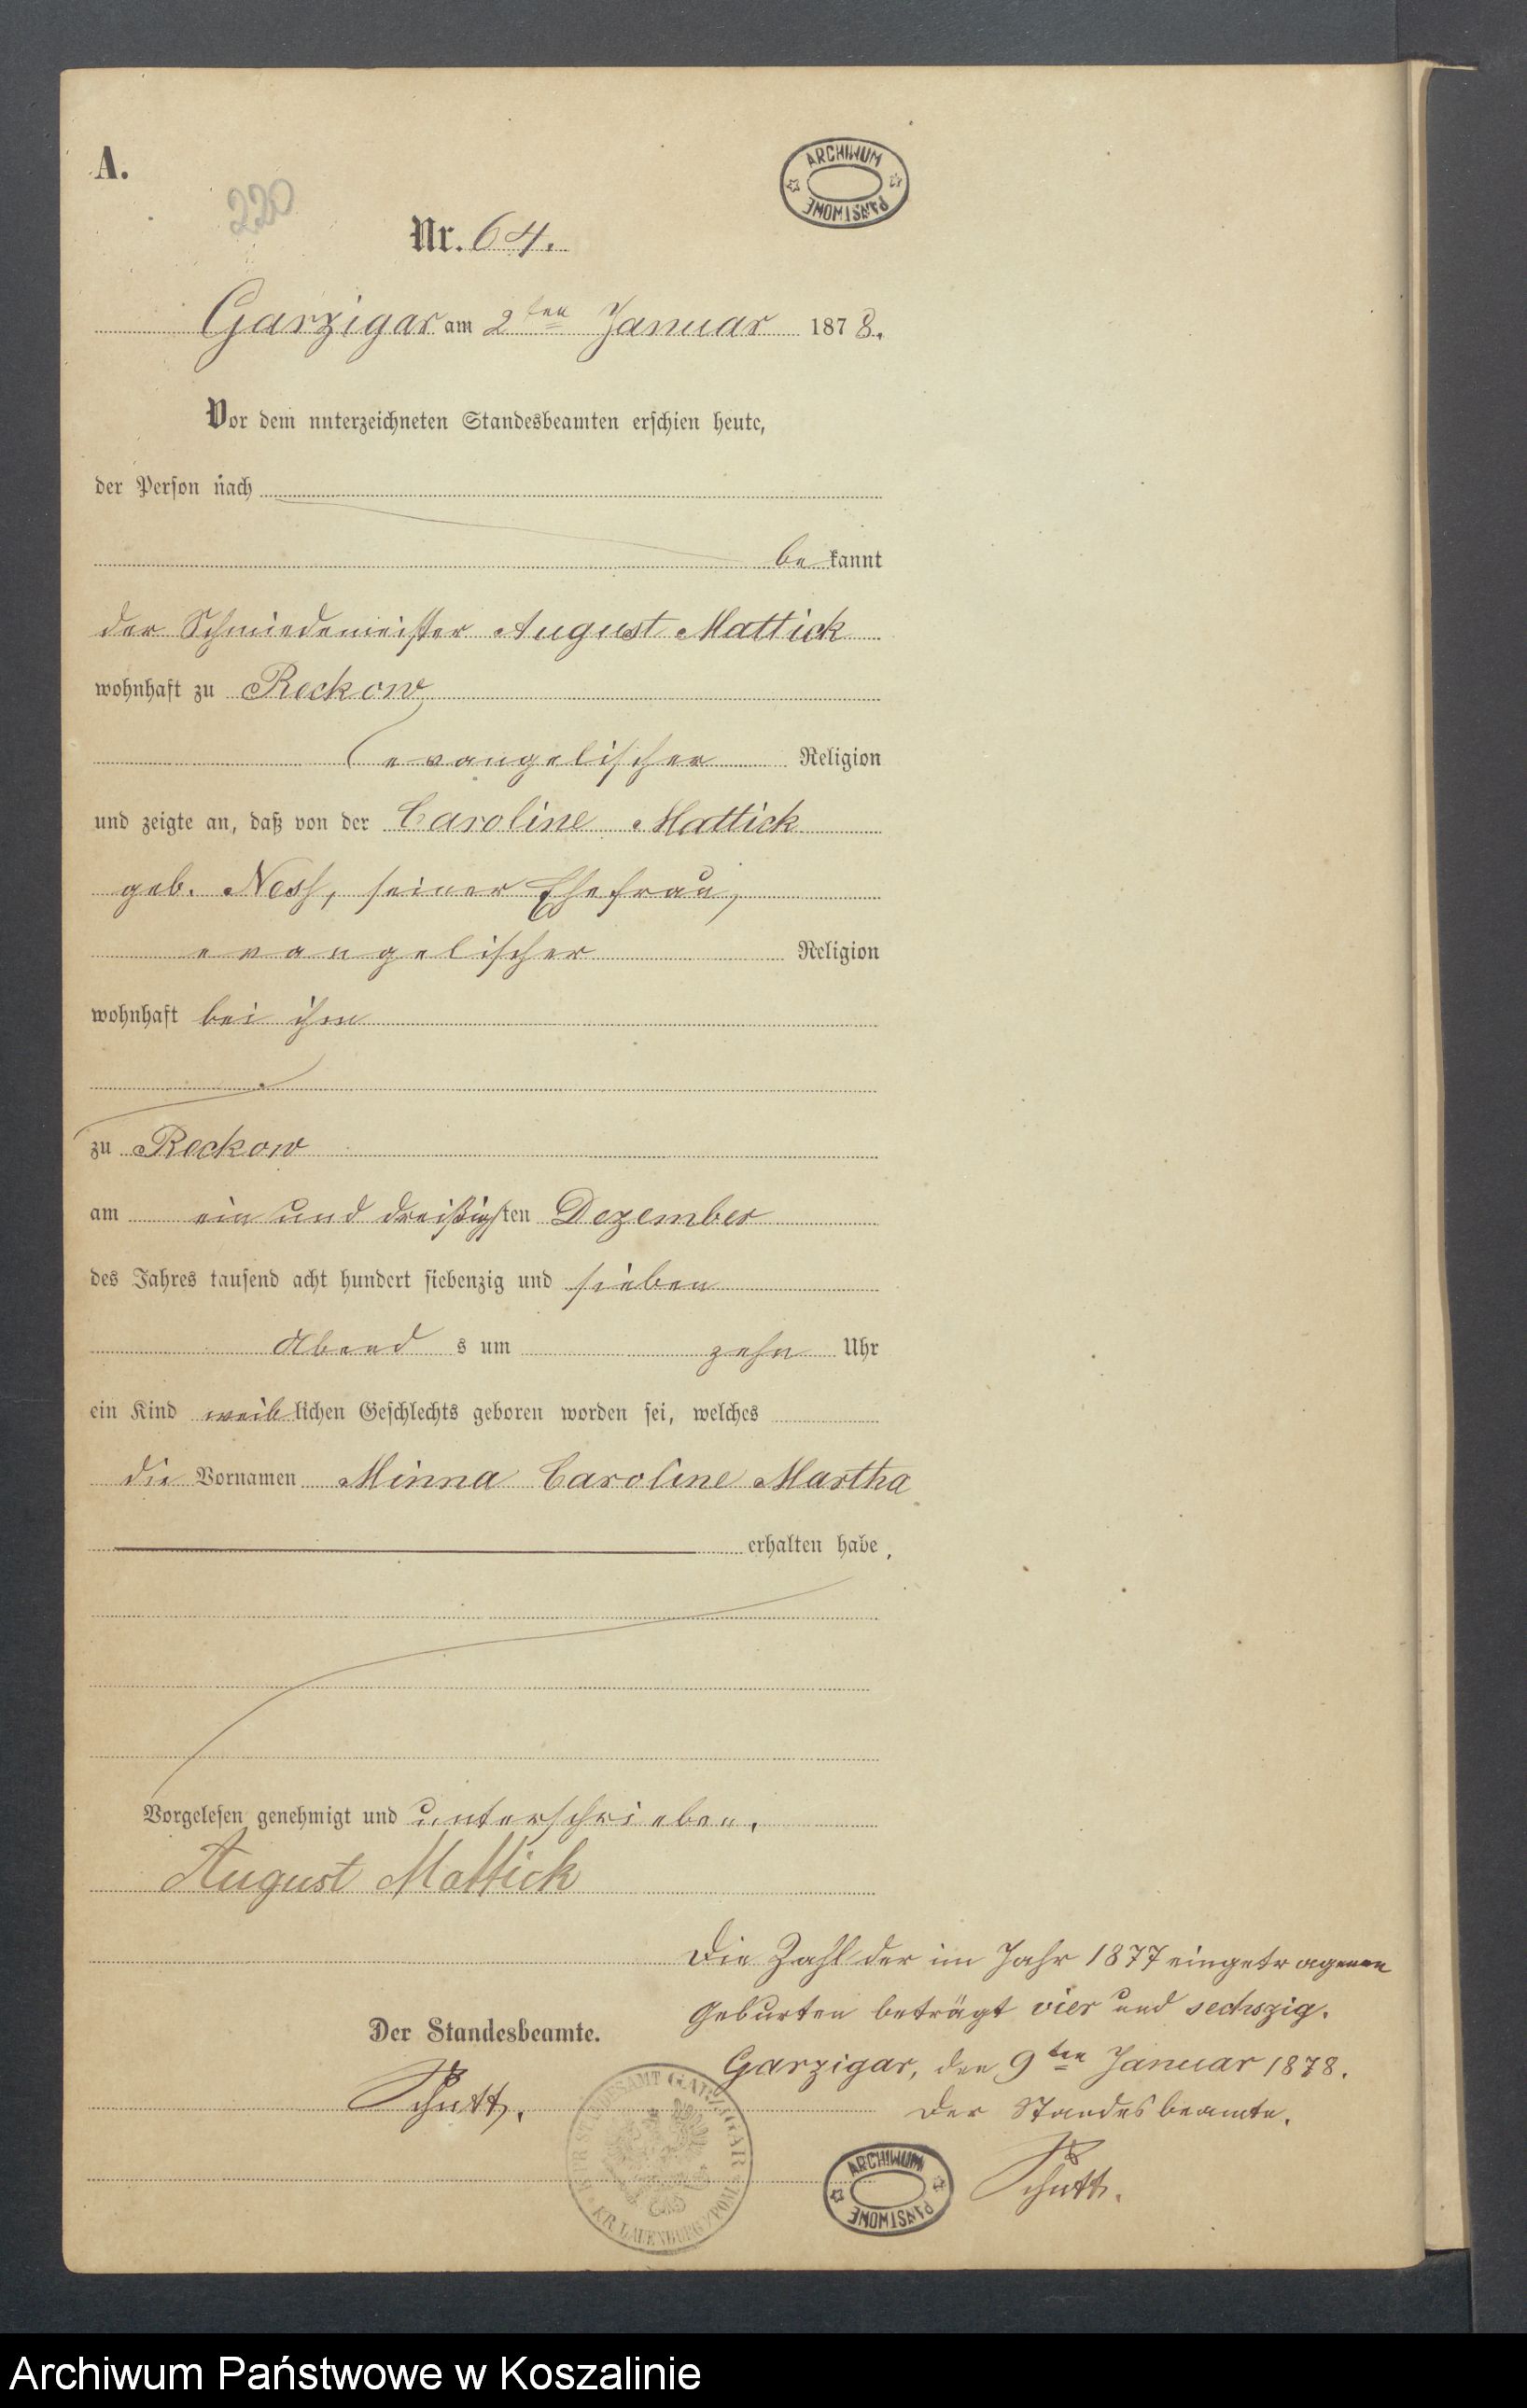 A.
220
ARCHIWUM PAŃSTWOWE
Nr. 64.
Garzigar am 2ten Januar 1878.
Vor dem unterzeichneten Standesbeamten erschien heute,
der Person nach
bekannt
der Schmiedemeister August Mattick
wohnhaft zu Reckow
evangelischer Religion
und zeigte an, daß von der Caroline Mattick
geb. Ness, seiner Ehefrau,
evangelischer Religion
wohnhaft bei ihm
zu Reckow
am ein und dreißigsten Dezember
des Jahres tausend acht hundert siebenzig und sieben
Abends um zehn Uhr
ein Kind weiblichen Geschlechts geboren worden sei, welches
die Vornamen Minna Caroline Martha
erhalten habe.
Vorgelesen genehmigt und unterschrieben.
August Mattick
Die Zahl der im Jahr 1877 eingetragenen
Geburten beträgt vier und sechszig.
Garzigar, den 9ten Januar 1878.
Der Standesbeamte.
Der Standesbeamte.
Schutt.
Schutt.
STANDESAMT GARZIGAR KR LAUENBURG /POM.
ARCHIWUM PAŃSTWOWE
Archiwum Państwowe w Koszalinie